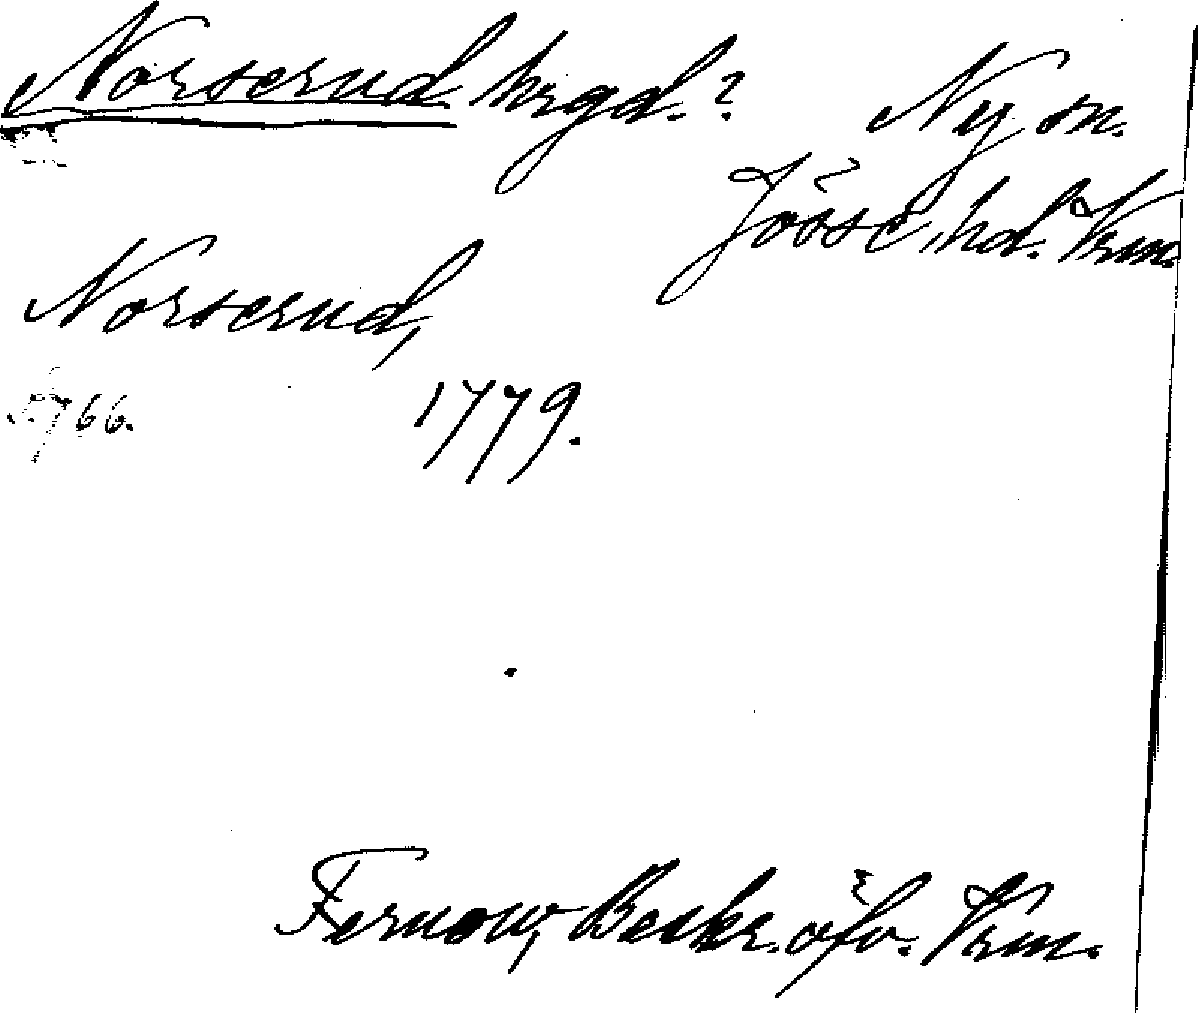 Norserud hrgd.? Ny sn.
Jösse hd. Vrm.
Norserud,
766. 1779.
Fernow, Beskr. öfv. Vrm.